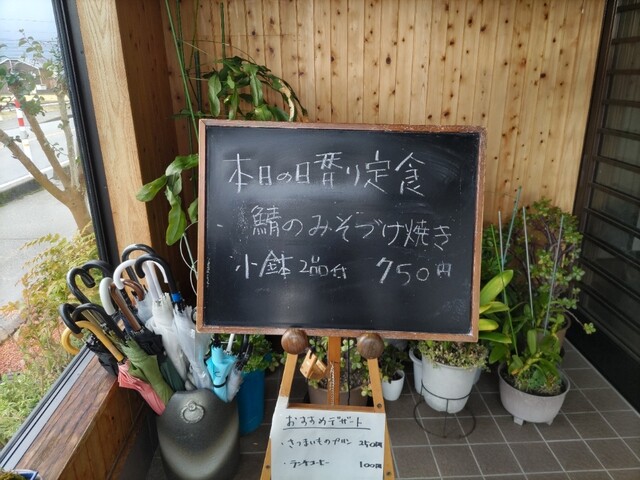 本日の日替り定食
・鯖のみそづけ焼き
小鉢2品付 750円
おすすめデザート
・さつまいものプリン 250円
・ランチコーヒー 100円